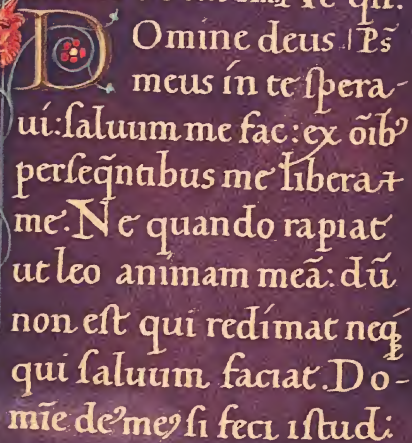 Domine deus Ps̄
meus ín te ſpera-
uí: ſaluum me fac: ex õib⁹
perſeq̃ntibus me libera ⁊
me. Ne quando rapiat
ut leo animam meã: dũ
non eſt qui redímat neqꝫ
qui ſaluum faciat. Do-
mĩe de⁹ me⁹ ſi feci iſtud: